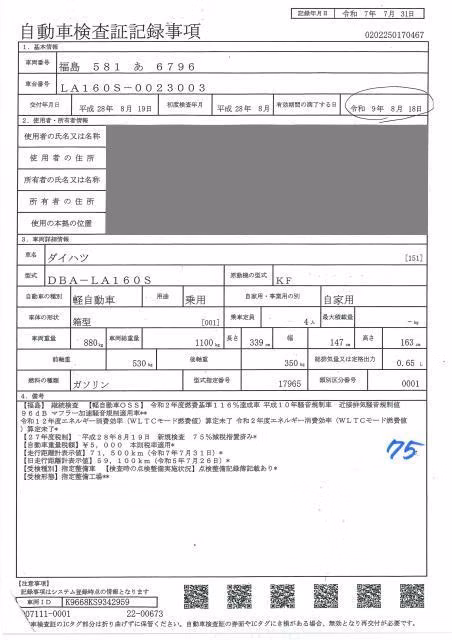 記録年月日 令和 7年 7月 31日
自動車検査証記録事項
0202250170467
1. 基本情報
車両番号 福島 581 あ 6796
車台番号 LA160S-0023003
交付年月日 平成 28年 8月 19日 初度検査年月 平成 28年 8月 有効期間の満了する日 令和 9年 8月 18日
2. 使用者・所有者情報
使用者の氏名又は名称
使用者の住所
所有者の氏名又は名称
所有者の住所
使用の本拠の位置
3. 車両詳細情報
車名 ダイハツ [151]
型式 DBA-LA160S 原動機の型式 KF
自動車の種別 軽自動車 用途 乗用 自家用・事業用の別 自家用
車体の形状 箱型 [001] 乗車定員 4人 最大積載量 -kg
車両重量 880kg 車両総重量 1100kg 長さ 339cm 幅 147cm 高さ 163cm
前軸重 530kg 後軸重 350kg 総排気量又は定格出力 0.65 L
燃料の種類 ガソリン 型式指定番号 17965 類別区分番号 0001
4. 備考
【福島】 継続検査 【軽自動車OSS】 令和2年度燃費基準116%達成車 平成10年騒音規制車 近接排気騒音規制値
96dB マフラー加速騒音規制適用車**
令和12年度エネルギー消費効率(WLTCモード燃費値)算定未了 令和2年度エネルギー消費効率(WLTCモード燃費値
)算定未了*
【27年度税制】 平成28年8月19日 新規検査 75%減税措置済み*
【自動車重量税額】 ¥5,000 本則税率適用*
【走行距離計表示値】 71,500km(令和7年7月31日)*
【旧走行距離計表示値】 59,100km(令和5年7月26日)*
【受検種別】 指定整備車 【検査時の点検整備実施状況】 点検整備記録簿記載あり*
【受検形態】 指定整備工場**
75
【注意事項】
記録事項はシステム登録時点の情報となります
車両ID K9668KS9342959
07111-0001 22-00673
車検査証のICタグ部分は折り曲げずに保管ください。自動車検査証の券面やICタグに古損がある場合、無効となり再交付が必要です。